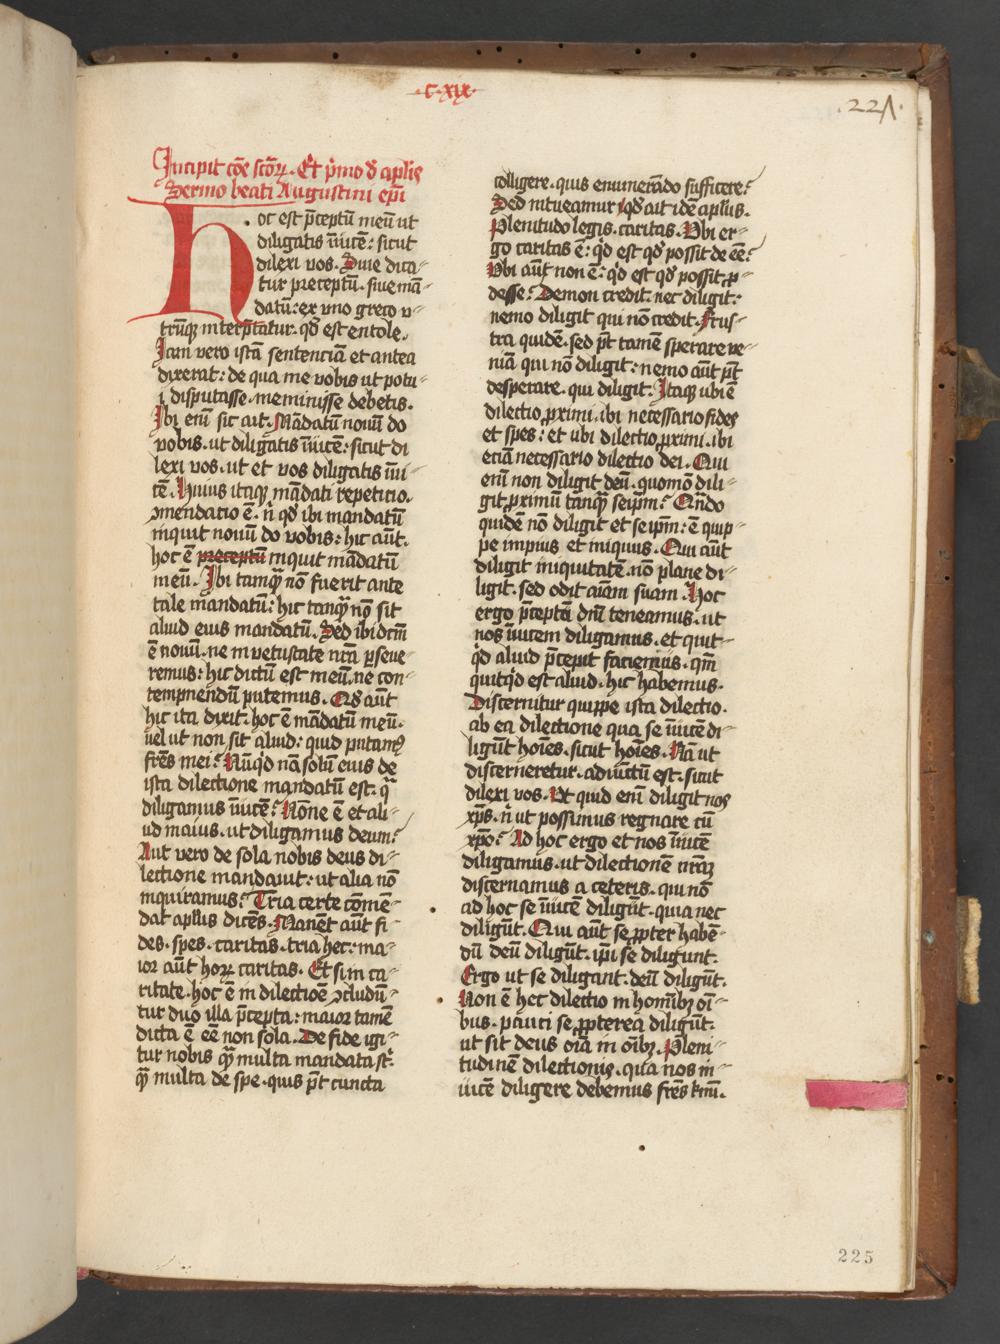 .c.xix.
.221.
Incipit cōe sctōꝝ. Et p̄mo d̄ aplīs
Sermo beati Augustini ep̄i
Hoc est p̄ceptū meū ut
diligatis īuicē: sicut
dilexi vos. Siue dica-
tur preceptū. siue mā-
datū: ex vno greco v-
trūqꝫ interp̄tatur. qđ est entole.
Iam vero istā sentenciā et antea
dixerat: de qua me vobis ut potu-
i disputasse meminisse debetis.
Ibi eni sic ait. Mādatū nouū do
vobis. ut diligatis īuicē: sicut di
lexi vos. ut et vos diligatis īui-
cē. Huius itaqꝫ mādati repeticio.
ꝯmendatio ē. n̄ qđ ibi mandatū
inquit nouū do vobis: hic aūt.
hoc ē preceptū inquit mādatū
meū. Ibi tamqᷓ nō fuerit ante
tale mandatū: hic tanqᷓ nō sit
aliud eius mandatū. Sed ibi dcm̄
ē nouū. ne in vetustate nr̄a ꝑseue-
remus: hic dictū est meū. ne con-
tempnendū putemus. Qđ aūt
hic ita dixit. hoc ē mādatū meū.
uel ut non sit aliud: quid putamꝰ
fr̄es mei? Nūqͥd nā solū eius de
ista dilectione mandatū est. qͣ
diligamus īuicē? Nōne ē et ali-
ud maius. ut diligamus deum?
Aut vero de sola nobis deus di-
lectione mandauit: ut alia nō
inquiramus? Tria certe cōmē-
dat apl̄us dicēs. Manēt aūt fi-
des. spes. caritas. tria hec: ma-
ior aūt hoꝝ caritas. Et si in ca-
ritate. hoc ē in dilectiōe ꝯcludū-
tur duo illa p̄cepta: maior tamē
dicta ē eē non sola. De fide igi-
tur nobis qᷓ multa mandata st̄:
qᷓ multa de spe. quis pōt cuncta
colligere. quis enumerādo sufficere?
Sed intueamur qđ ait idē apl̄us.
Plenitudo legis. caritas. Vbi er-
go caritas ē: qͥd est qđ possit de eē?
Vbi aūt non ē: qͥd est qđ possit ꝓ-
desse? Demon credit. nec diligit:
nemo diligit qui nō credit. Frus-
tra quidē. sed pōt tamē sperare ve-
niā qui nō diligit: nemo aūt pōt
desperare. qui diligit. Itaqꝫ ubi ē
dilectio ꝓximi. ibi necessario fides
et spes: et ubi dilectio ꝓximi. ibi
eciā necessario dilectio dei. Qui
eni non diligit deū. quomō dili-
git ꝓximū tanqᷓ seip̄m? Qn̄do
quidē nō diligit et seip̄m: ē quip-
pe impius et iniquus. Qui aūt
diligit iniquitatē. nō plane di-
ligit. sed odit aīam suam. Hoc
ergo p̄ceptū dnī teneamus. ut
nos īuicem diligamus. et quit-
qͥd aliud p̄cepit faciemus. qm̄
quitqͥd est aliud. hic habemus.
Discernitur quippe ista dilectio.
ab ea dilectione qua se īuicē di-
ligūt hoīes. sicut hoīes. Nā ut
discerneretur. adiūctū est. sicut
dilexi vos. Vt quid eni diligit nos
xp̄s. n̄ ut possimus regnare cū
xp̄o? Ad hoc ergo et nos īuicē
diligamus. ut dilectionē nrāꝫ
discernamus a ceteris. qui nō
ad hoc se īuicē diligūt. quia nec
diligūt. Qui aūt se ꝓpter habē-
dū deū diligūt. ip̄i se diligunt.
Ergo ut se diligant. deū diligūt.
Non ē hec dilectio in hominibꝫ oī-
bus. pauci se ꝓpterea diligūt.
ut sit deus oīa in oībꝫ. Pleni-
tudinē dilectionis. qua nos in-
uicē diligere debemus fr̄es kmī.
225